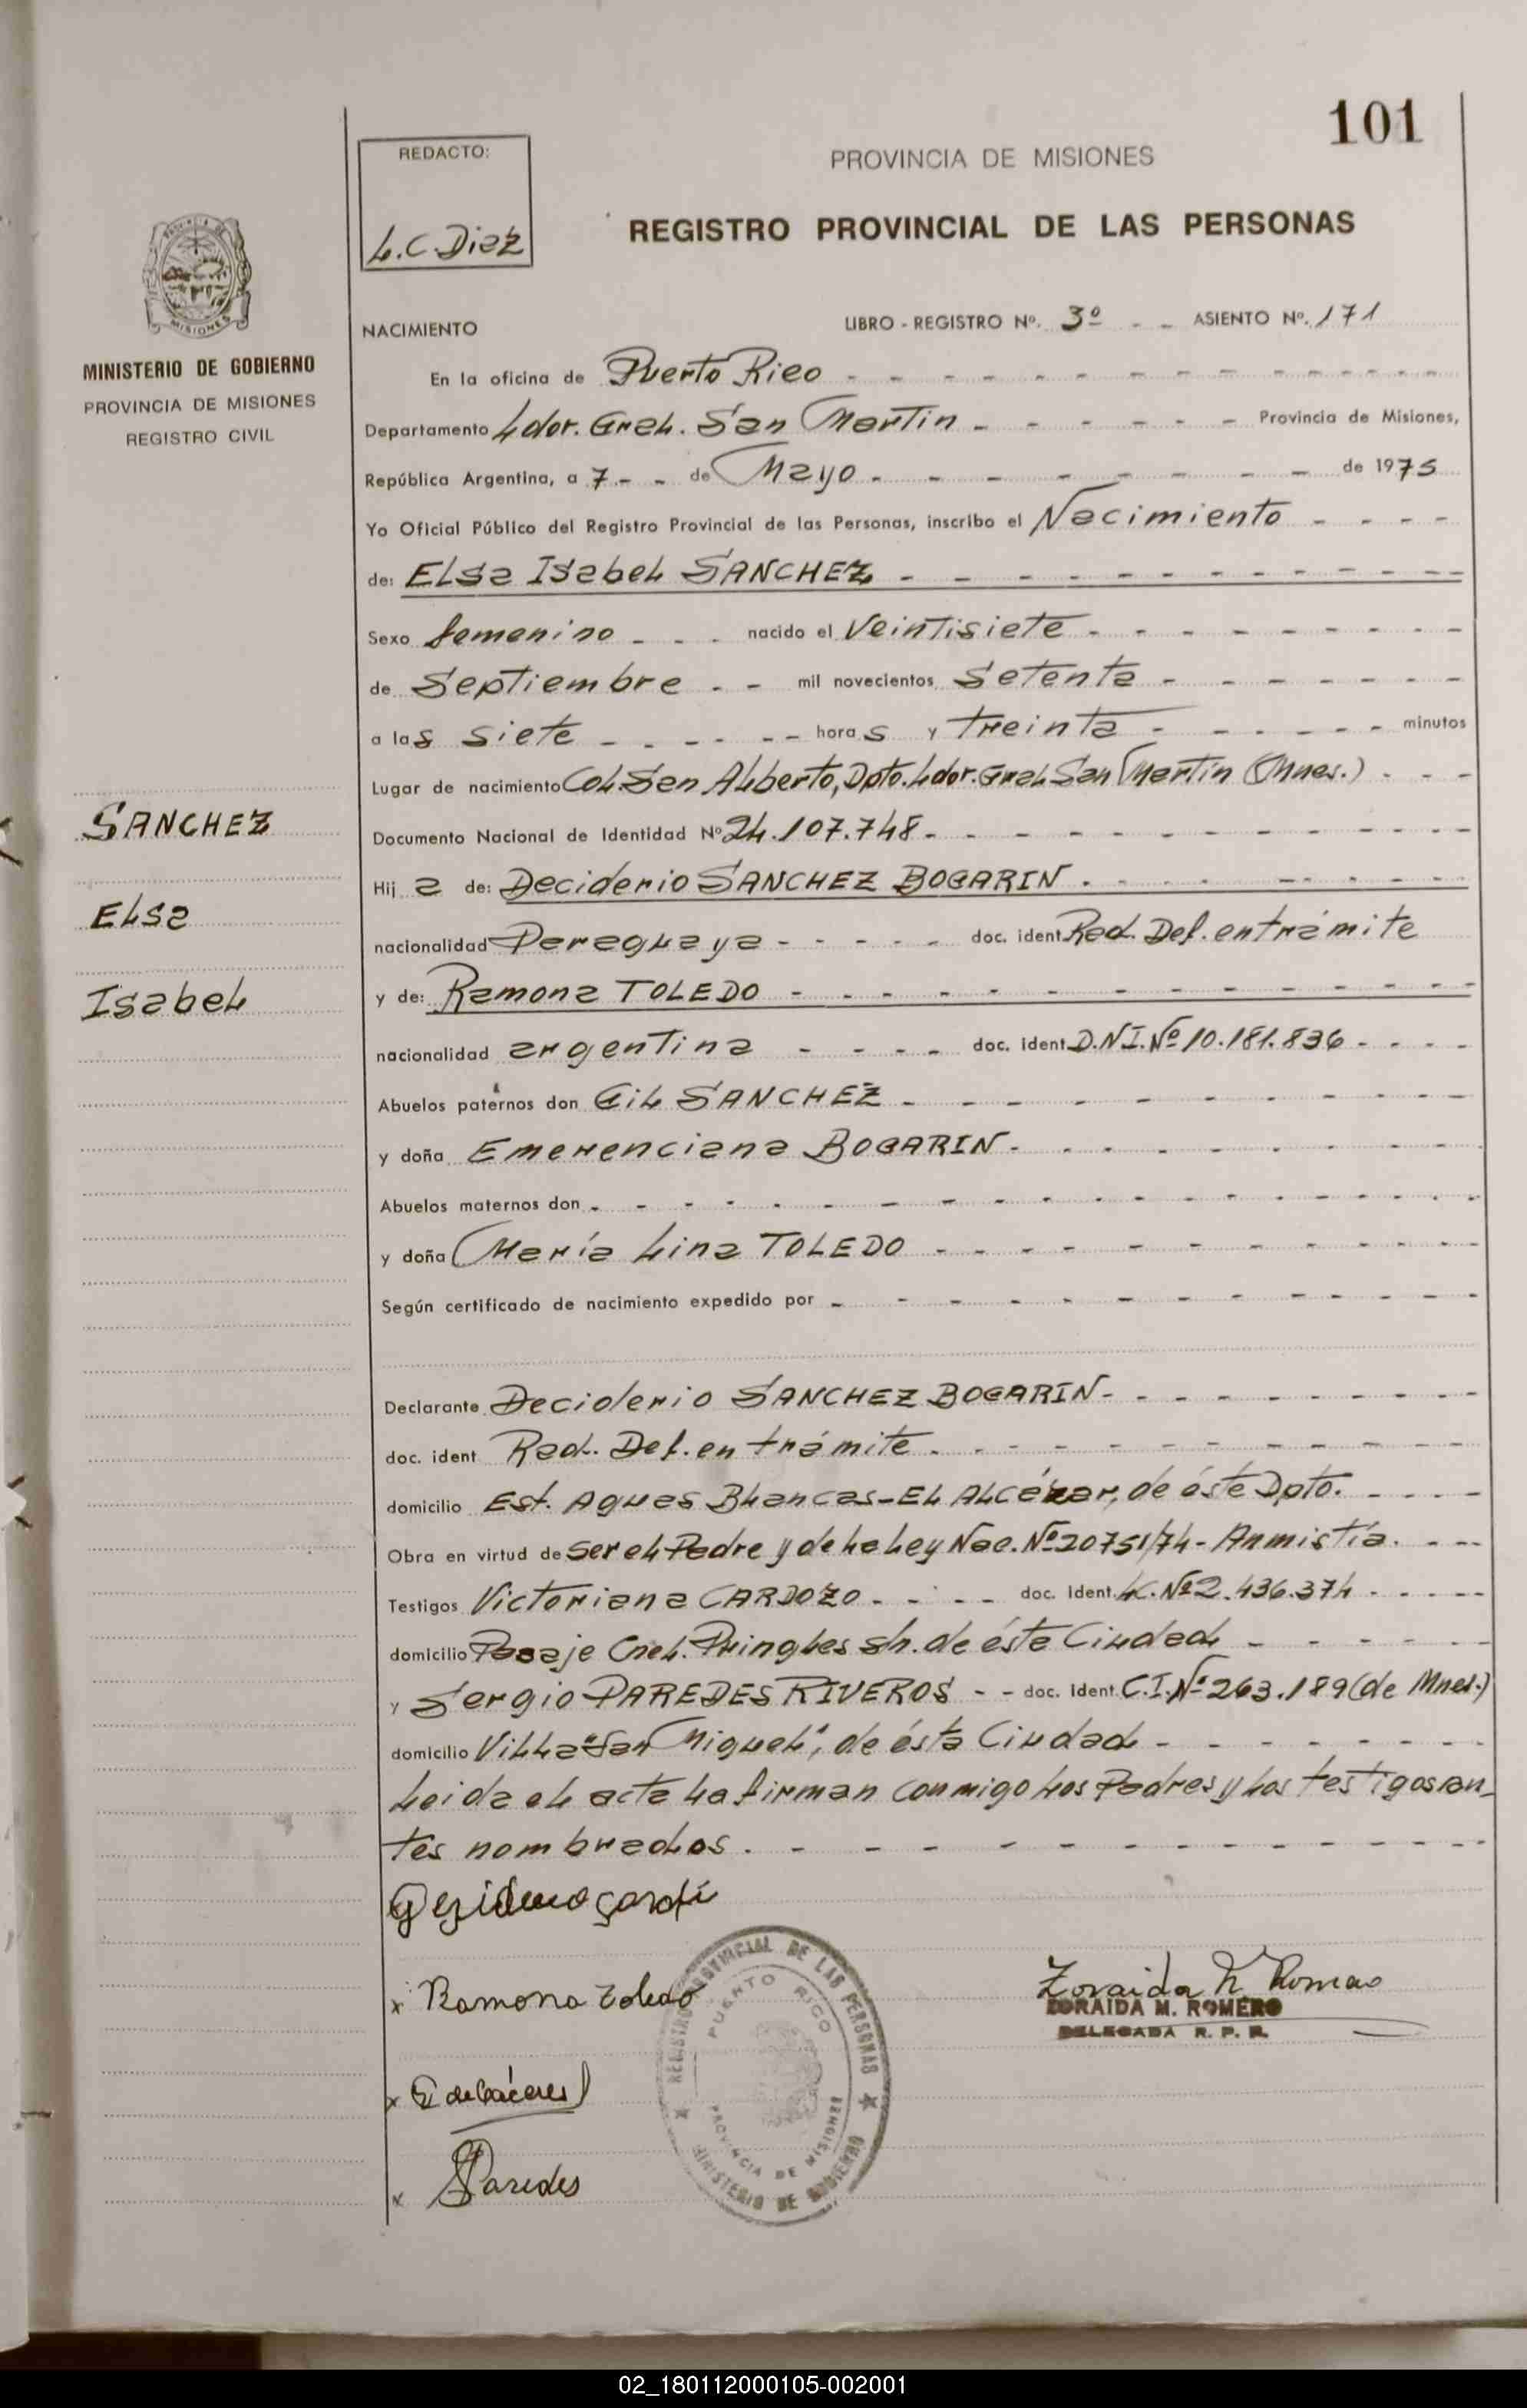 101
REDACTO:
L.C.Diez
PROVINCIA DE MISIONES
REGISTRO PROVINCIAL DE LAS PERSONAS
MISIONES
MINISTERIO DE GOBIERNO
PROVINCIA DE MISIONES
REGISTRO CIVIL
NACIMIENTO LIBRO - REGISTRO Nº. 3º - - ASIENTO Nº. 171
En la oficina de Puerto Rico
Departamento Ldor. Gral. San Martin - Provincia de Misiones,
República Argentina, a 7 - - de Mayo - de 1975
Yo Oficial Público del Registro Provincial de las Personas, inscribo el Nacimiento
de: ELsa Isabel SANCHEZ
Sexo femenino - - - nacido el Veintisiete
de Septiembre - - mil novecientos Setenta
a las siete - - - horas y treinta - - - minutos
Lugar de nacimiento Col. San Alberto, Dpto. Ldor. Gral San Martin (Mnes.)
SANCHEZ
Documento Nacional de Identidad Nº 24.107.748
Hija de: Deciderio SANCHEZ BOGARIN
ELsa
nacionalidad Paraguaya - - - doc. ident Rad. Def. en trámite
Isabel
y de: Ramona TOLEDO
nacionalidad argentina - - - doc. ident D.N.I. Nº 10.181.836
Abuelos paternos don Gil SANCHEZ
y doña Emerenciana BOGARIN
Abuelos maternos don
y doña María Lina TOLEDO
Según certificado de nacimiento expedido por
Declarante Deciderio SANCHEZ BOGARIN
doc. ident Rad. Def. en trámite
domicilio Est. Aguas Blancas - El Alcázar, de éste Dpto.
Obra en virtud de ser el Padre y de la Ley Nac. Nº 20751/74 - Anmistía.
Testigos Victoriana CARDOZO - - - doc. ident. L.C. Nº 2.436.374
domicilio Pasaje Cnel. Pringles sn. de ésta Ciudad
y Sergio PAREDES RIVEROS - - doc. ident. C.I. Nº 263.189 (de Mnes.)
domicilio Villa "San Miguel", de ésta Ciudad
Leida el acta la firman conmigo los Padres y los testigos an-
tes nombrados.
x Ramona Toledo
Zoraida M Romero
ZORAIDA M. ROMERO
DELEGADA R. P. P.
x V de Cáceres
x SParedes
REGISTRO PROVINCIAL DE LAS PERSONAS
PUERTO RICO
PROVINCIA DE MISIONES
MINISTERIO DE GOBIERNO
02_180112000105-002001